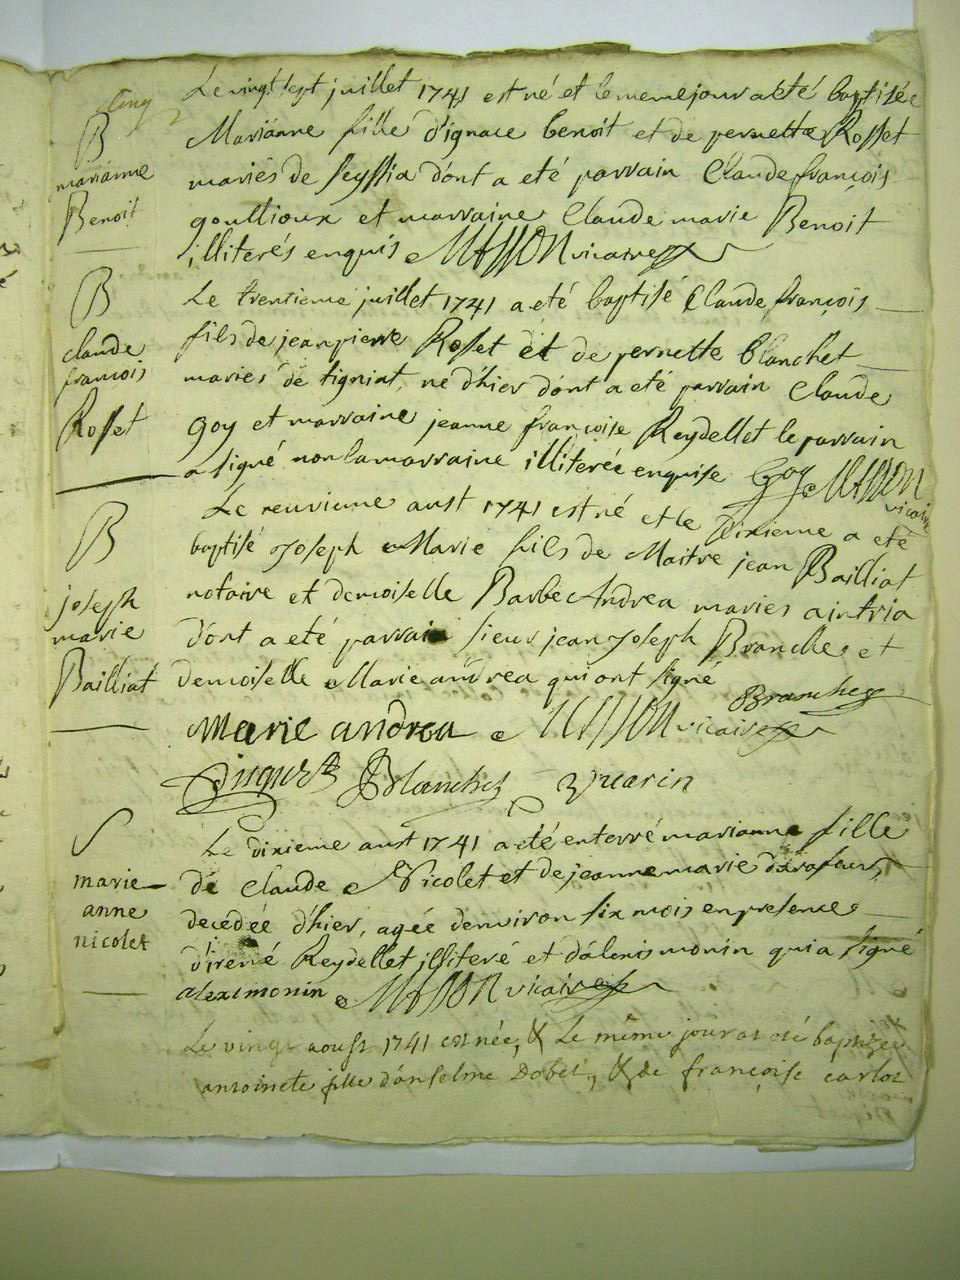 Cinq
B
marianne
Benoit
Le vingt sept juillet 1741 est né et le meme jour a été baptisée
Marianne fille d'ignace benoit et de pernette Rosset
mariés de seyssia dont a eté parrain Claude françois
goullioux et marraine Claude marie Benoit
illiterés enquis Masson vicaire
B
claude
francois
Rosset
Le trentieme juillet 1741 a eté baptisé Claude françois
fils de jean pierre Rosset et de pernette blanchet
mariés de tigniat, né d'hier dont a eté parrain Claude
Goy et marraine jeanne françoise Reydellet le parrain
a signé non la marraine illiterée enquise Goy Masson
vicaire
B
joseph
marie
Bailliat
Le neuvieme aust 1741 est né et le dixieme a eté
baptisé Joseph Marie fils de Maitre jean Bailliat
notaire et demoiselle Barbe Andrea mariés a intria
dont a eté parrain sieur jean Joseph Branche et
demoiselle Marie andrea qui ont signé
Branche
Marie andrea Masson vicaire
Blanchet Vuarin
S
marie
anne
nicolet
Le dixieme aust 1741 a eté enterré marianne fille
de Claude Nicolet et de jeanne marie
decedée d'hier, agée denviron six mois en presence
d'irené Reydellet illiteré et d'alexis monin qui a signé
alexi monin Masson vicaire
Le vingt aoust 1741 est née, & Le même jour a eté baptizée
antoinete fille d'anselme Dobet, & de françoise carlot